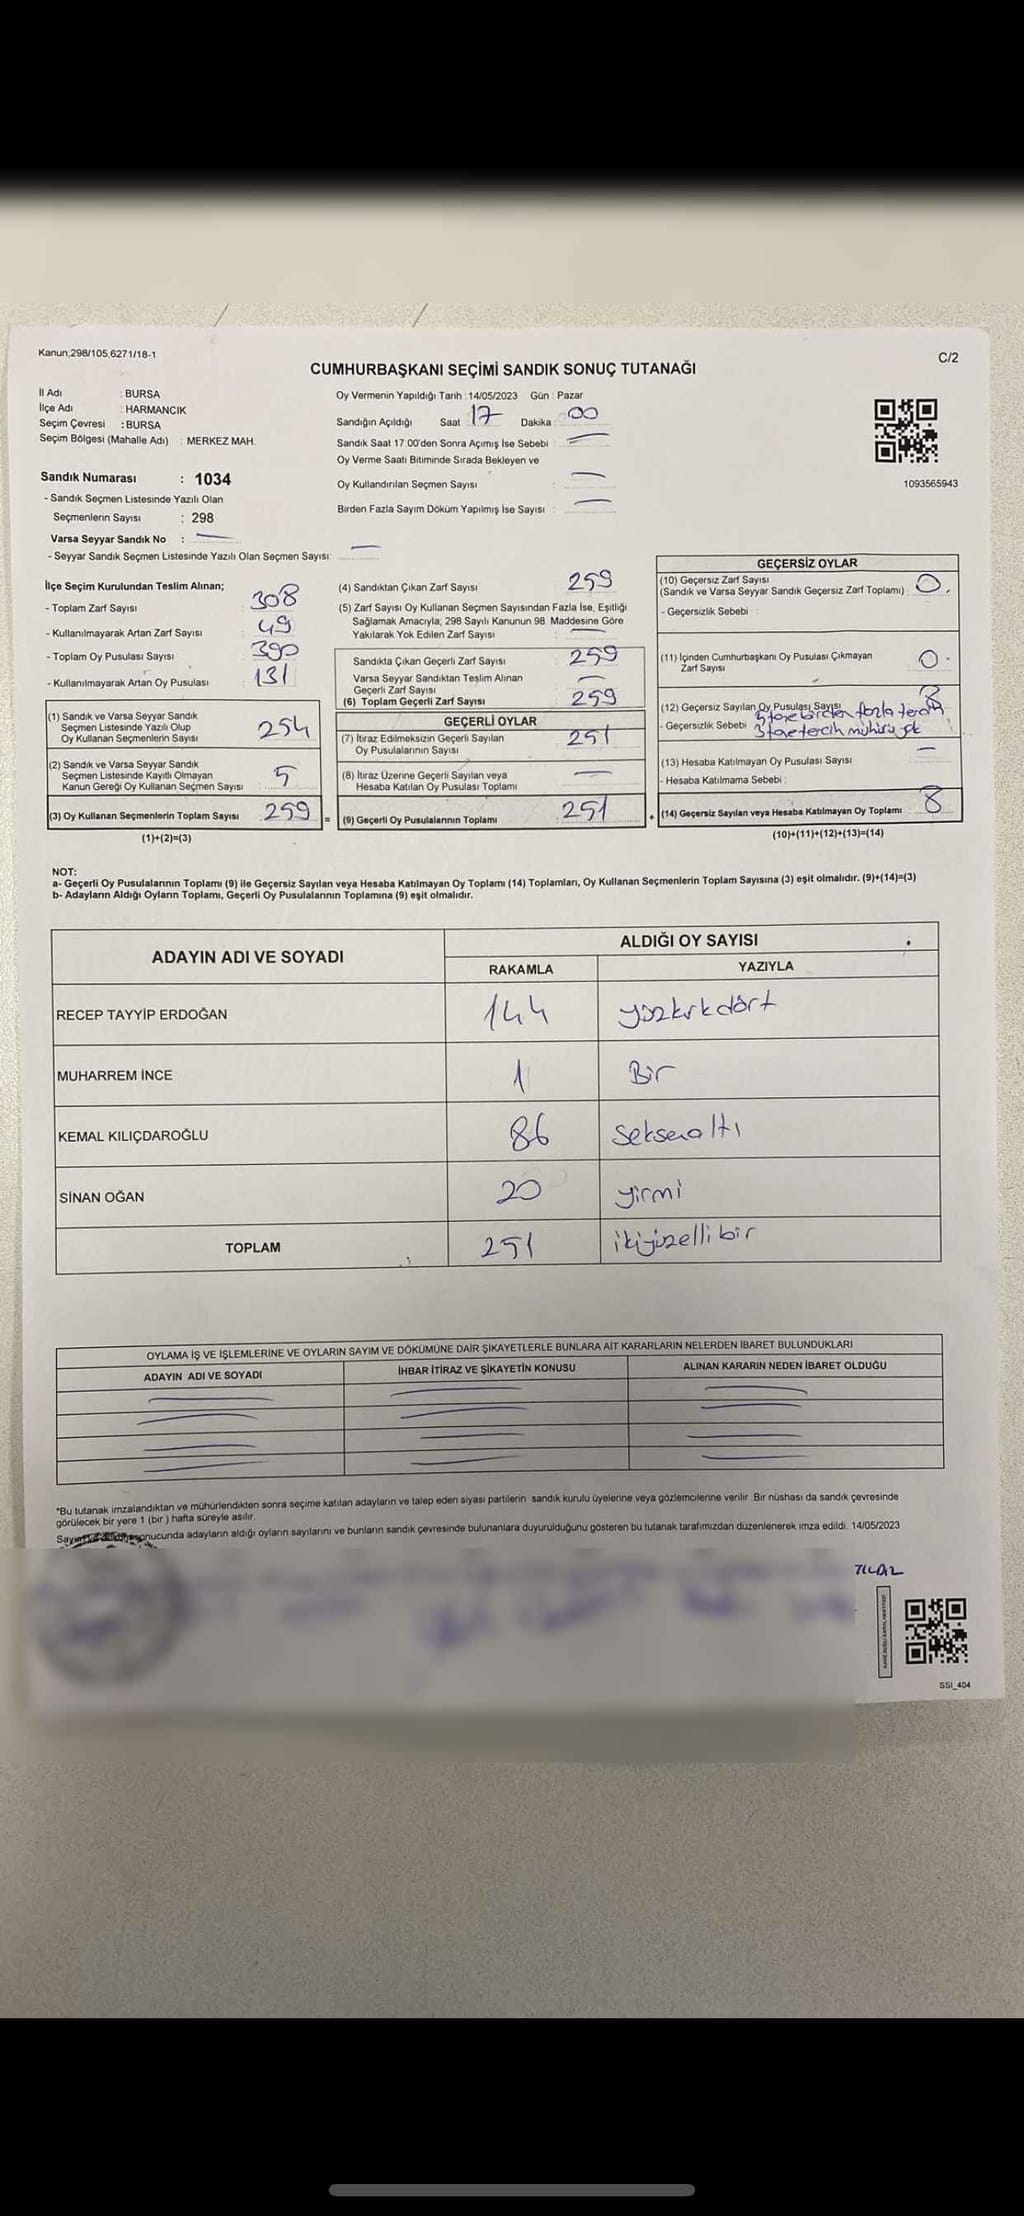 Kanun;298/105,6271/18-1
C/2
CUMHURBAŞKANI SEÇİMİ SANDIK SONUÇ TUTANAĞI
İl Adı : BURSA
İlçe Adı : HARMANCIK
Seçim Çevresi : BURSA
Seçim Bölgesi (Mahalle Adı) : MERKEZ MAH.
Sandık Numarası : 1034
- Sandık Seçmen Listesinde Yazılı Olan
Seçmenlerin Sayısı : 298
Varsa Seyyar Sandık No : —
- Seyyar Sandık Seçmen Listesinde Yazılı Olan Seçmen Sayısı: —
Oy Vermenin Yapıldığı Tarih : 14/05/2023 Gün : Pazar
Sandığın Açıldığı Saat 17 Dakika 00
Sandık Saat 17:00'den Sonra Açımış İse Sebebi : —
Oy Verme Saati Bitiminde Sırada Bekleyen ve
Oy Kullandırılan Seçmen Sayısı : —
Birden Fazla Sayım Döküm Yapılmış İse Sayısı : —
1093565943
İlçe Seçim Kurulundan Teslim Alınan;
- Toplam Zarf Sayısı 308
- Kullanılmayarak Artan Zarf Sayısı 49
- Toplam Oy Pusulası Sayısı 390
- Kullanılmayarak Artan Oy Pusulası 131
(1) Sandık ve Varsa Seyyar Sandık
Seçmen Listesinde Yazılı Olup
Oy Kullanan Seçmenlerin Sayısı 254
(2) Sandık ve Varsa Seyyar Sandık
Seçmen Listesinde Kayıtlı Olmayan
Kanun Gereği Oy Kullanan Seçmen Sayısı 5
(3) Oy Kullanan Seçmenlerin Toplam Sayısı : 259 =
(1)+(2)=(3)
(4) Sandıktan Çıkan Zarf Sayısı 259
(5) Zarf Sayısı Oy Kullanan Seçmen Sayısından Fazla İse, Eşitliği
Sağlamak Amacıyla; 298 Sayılı Kanunun 98. Maddesine Göre
Yakılarak Yok Edilen Zarf Sayısı : —
Sandıkta Çıkan Geçerli Zarf Sayısı : 259
Varsa Seyyar Sandıktan Teslim Alınan
Geçerli Zarf Sayısı —
(6) Toplam Geçerli Zarf Sayısı 259
GEÇERLİ OYLAR
(7) İtiraz Edilmeksizin Geçerli Sayılan
Oy Pusulalarının Sayısı 251
(8) İtiraz Üzerine Geçerli Sayılan veya
Hesaba Katılan Oy Pusulası Toplamı —
(9) Geçerli Oy Pusulalarının Toplamı : 251 +
GEÇERSİZ OYLAR
(10) Geçersiz Zarf Sayısı
(Sandık ve Varsa Seyyar Sandık Geçersiz Zarf Toplamı) : 0
- Geçersizlik Sebebi :
(11) İçinden Cumhurbaşkanı Oy Pusulası Çıkmayan
Zarf Sayısı 0
(12) Geçersiz Sayılan Oy Pusulası Sayısı 8
- Geçersizlik Sebebi 5 tane birden fazla tercih
3 tane tercih mühürü yok
(13) Hesaba Katılmayan Oy Pusulası Sayısı —
- Hesaba Katılmama Sebebi :
(14) Geçersiz Sayılan veya Hesaba Katılmayan Oy Toplamı 8
(10)+(11)+(12)+(13)=(14)
NOT:
a- Geçerli Oy Pusulalarının Toplamı (9) ile Geçersiz Sayılan veya Hesaba Katılmayan Oy Toplamı (14) Toplamları, Oy Kullanan Seçmenlerin Toplam Sayısına (3) eşit olmalıdır. (9)+(14)=(3)
b- Adayların Aldığı Oyların Toplamı, Geçerli Oy Pusulalarının Toplamına (9) eşit olmalıdır.
ADAYIN ADI VE SOYADI
ALDIĞI OY SAYISI
RAKAMLA YAZIYLA
RECEP TAYYİP ERDOĞAN 144 yüzkırkdört
MUHARREM İNCE 1 Bir
KEMAL KILIÇDAROĞLU 86 seksenaltı
SİNAN OĞAN 20 yirmi
TOPLAM 251 ikiyüzellibir
OYLAMA İŞ VE İŞLEMLERİNE VE OYLARIN SAYIM VE DÖKÜMÜNE DAİR ŞİKAYETLERLE BUNLARA AİT KARARLARIN NELERDEN İBARET BULUNDUKLARI
ADAYIN ADI VE SOYADI İHBAR İTİRAZ VE ŞİKAYETİN KONUSU ALINAN KARARIN NEDEN İBARET OLDUĞU
*Bu tutanak imzalandıktan ve mühürlendikten sonra seçime katılan adayların ve talep eden siyasi partilerin sandık kurulu üyelerine veya gözlemcilerine verilir. Bir nüshası da sandık çevresinde
görülecek bir yere 1 (bir ) hafta süreyle asılır.
sonucunda adayların aldığı oyların sayılarını ve bunların sandık çevresinde bulunanlara duyurulduğunu gösteren bu tutanak tarafımızdan düzenlenerek imza edildi. 14/05/2023
SSI_404